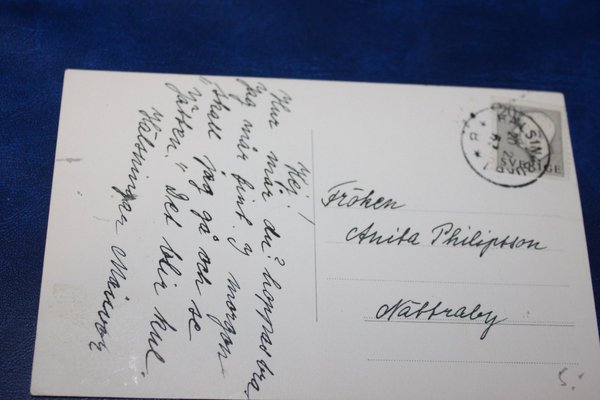 Hej!
Hur mår du? hoppas bra.
Jag mår fint. I morgon
skall jag gå och se
Jätten. Det blir kul.
Hälsningar Mainvor
Fröken
Anita Philipsson
Nättraby
SVERIGE